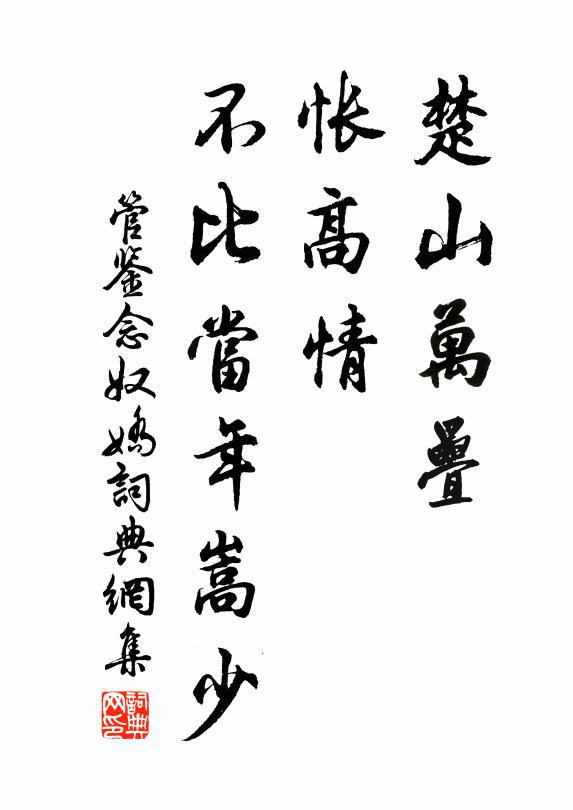 楚山萬疊
悵高情
不比當年嵩少
管鑒念奴嬌詞典網集
詞典网印